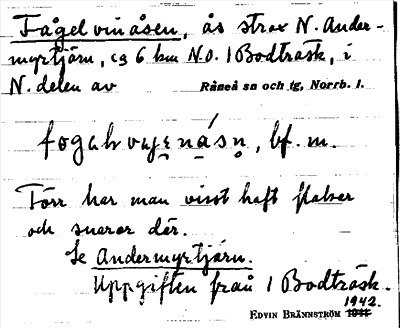 Fågelvinåsen, ås strax N. Ander-
myrtjärn, ca 6 km N.O. 1 Bodträsk, i
N. delen av Råneå sn och tg, Norrb. l.
bf. m.
Förr har man visst haft flakar
och snaror där.
Se Andermyrtjärn.
Uppgiften från 1 Bodträsk.
1942.
EDVIN BRÄNNSTRÖM 1941